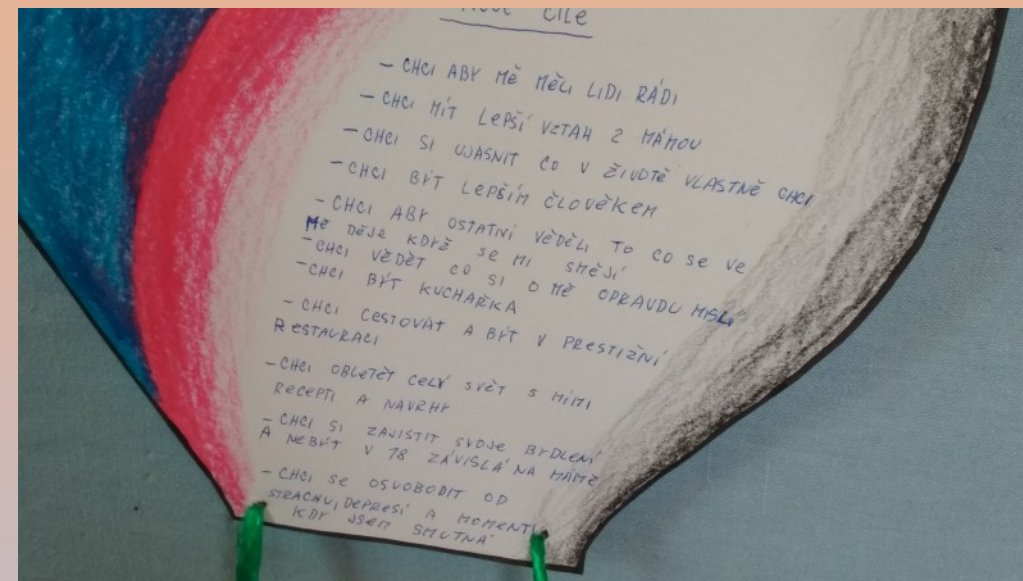 CÍLE
- CHCI ABY MĚ MĚLI LIDI RÁDI
- CHCI MÍT LEPŠÍ VZTAH Z MÁMOU
- CHCI SI UJASNIT CO V ŽIVOTĚ VLASTNĚ CHCI
- CHCI BÝT LEPŠÍM ČLOVĚKEM
- CHCI ABY OSTATNÍ VĚDĚLI TO CO SE VE
MĚ DĚJE KDYŽ SE MI SMĚJÍ
- CHCI VĚDĚT CO SI O MĚ OPRAVDU MISLÍ
- CHCI BÝT KUCHAŘKA
- CHCI CESTOVAT A BÝT V PRESTIŽNÍ
RESTAURACI
- CHCI OBLETĚT CELÝ SVĚT S MÍMI
RECEPTI A NAVRHY
- CHCI SI ZAJISTIT SVOJE BYDLENÍ
A NEBÝT V 18 ZÁVISLÁ NA MÁMĚ
- CHCI SE OSVOBODIT OD
STRACHU, DEPRESÍ A MOMENTU
KDY JSEM SMUTNÁ